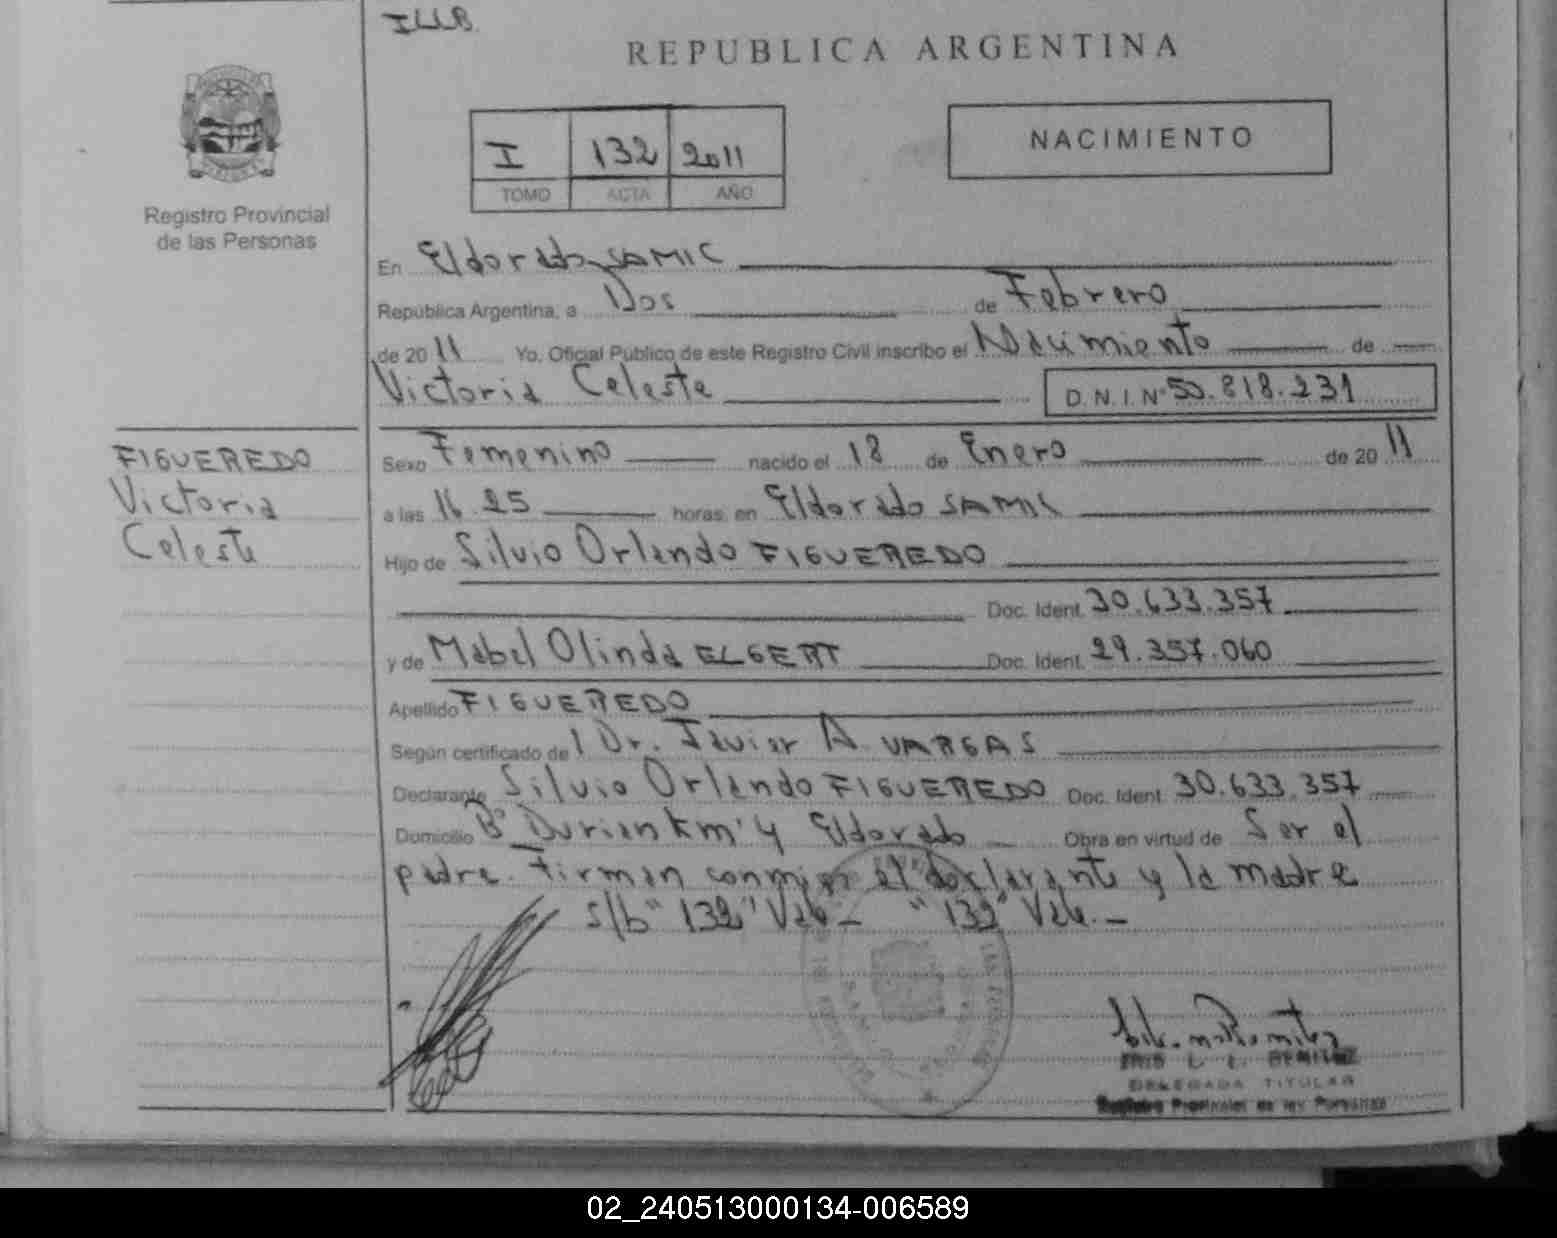 ILLB.
REPUBLICA ARGENTINA
I 132 2011
TOMO ACTA AÑO
NACIMIENTO
Registro Provincial
de las Personas
En Eldorado SAMIC
República Argentina, a Dos de Febrero
de 2011 Yo, Oficial Público de este Registro Civil inscribo el Nacimiento de
Victoria Celeste D.N.I. Nº 50.818.231
FIGUEREDO
Victoria
Celeste
Sexo Femenino nacido el 18 de Enero de 2011
a las 16.25 horas en Eldorado SAMIC
Hijo de Silvio Orlando FIGUEREDO
Doc. Ident. 30.633.357
y de Mabel Olinda ELGERT Doc. Ident. 29.357.060
Apellido FIGUEREDO
Según certificado del Dr. Javier A. VARGAS
Declarante Silvio Orlando FIGUEREDO Doc. Ident. 30.633.357
Domicilio Bº Durian Km 4 Eldorado Obra en virtud de Ser el
padre. Firman conmigo el declarante y la madre
s/b "132" Vale.- "132" Vale.-
L. L. BENITEZ
DELEGADA TITULAR
Registro Provincial de las Personas
02_240513000134-006589